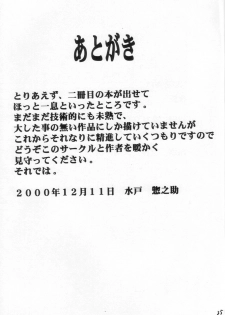 あとがき
とりあえず、二冊目の本が出せて
ほっと一息といったところです。
まだまだ技術的にも未熟で、
大した事の無い作品にしか描けていませんが
これからそれなりに精進していくつもりですので
どうぞこのサークルと作者を暖かく
見守ってください。
それでは。
２０００年１２月１１日　水戸　惣之助
25